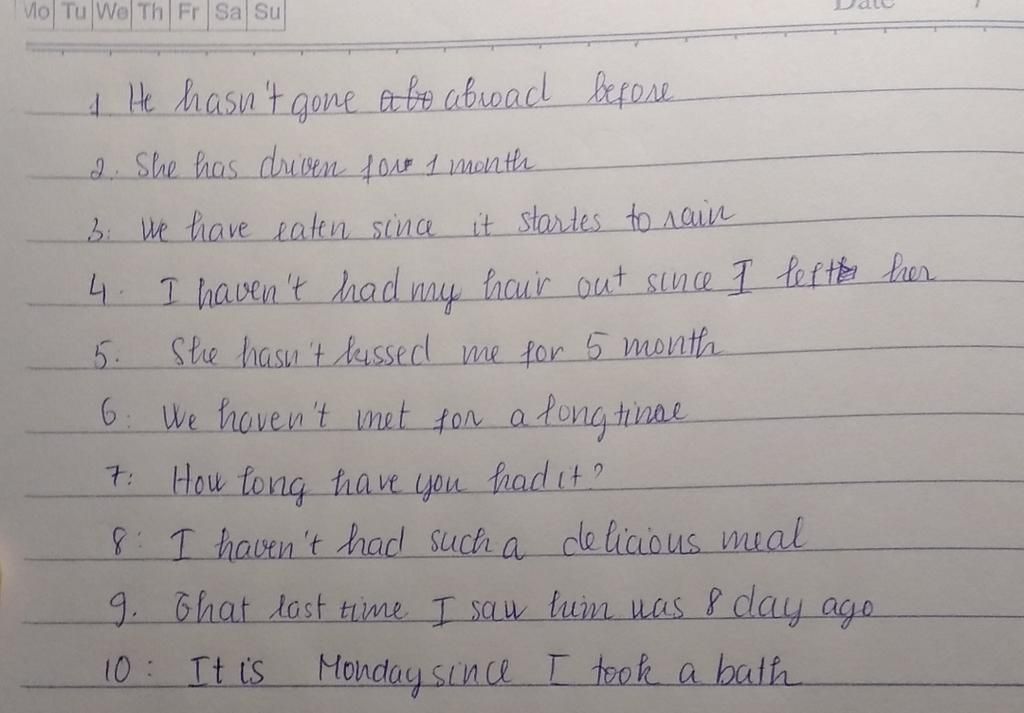 Mo Tu We Th Fr Sa Su Date
1 He hasn't gone abo abroad before
2. She has driven for 1 month
3. We have eaten since it startes to rain
4. I haven't had my hair out since I left her
5. She hasn't kissed me for 5 month
6. We haven't met for a long time
7. How long have you had it?
8: I haven't had such a delicious meal
9. That last time I saw him was 8 day ago
10: It is Monday since I took a bath